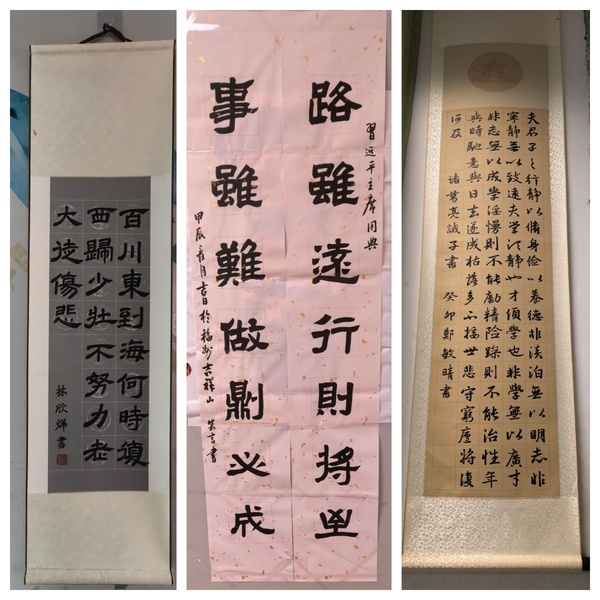 百川東到海何時復
西歸少壯不努力老
大徒傷悲
林欣烨書
習近平主席用典
路雖遠行則將至
事雖難做則必成
甲辰月吉日於福州吉祥山 書
夫君子之行靜以脩身儉以養德非淡泊無以明志非
寧靜無以致遠夫學須靜也才須學也非學無以廣才
非志無以成學淫慢則不能勵精險躁則不能治性年
與時馳意與日去遂成枯落多不接世悲守窮廬將復
何及 諸葛亮誡子書 癸卯鄭敏晴書